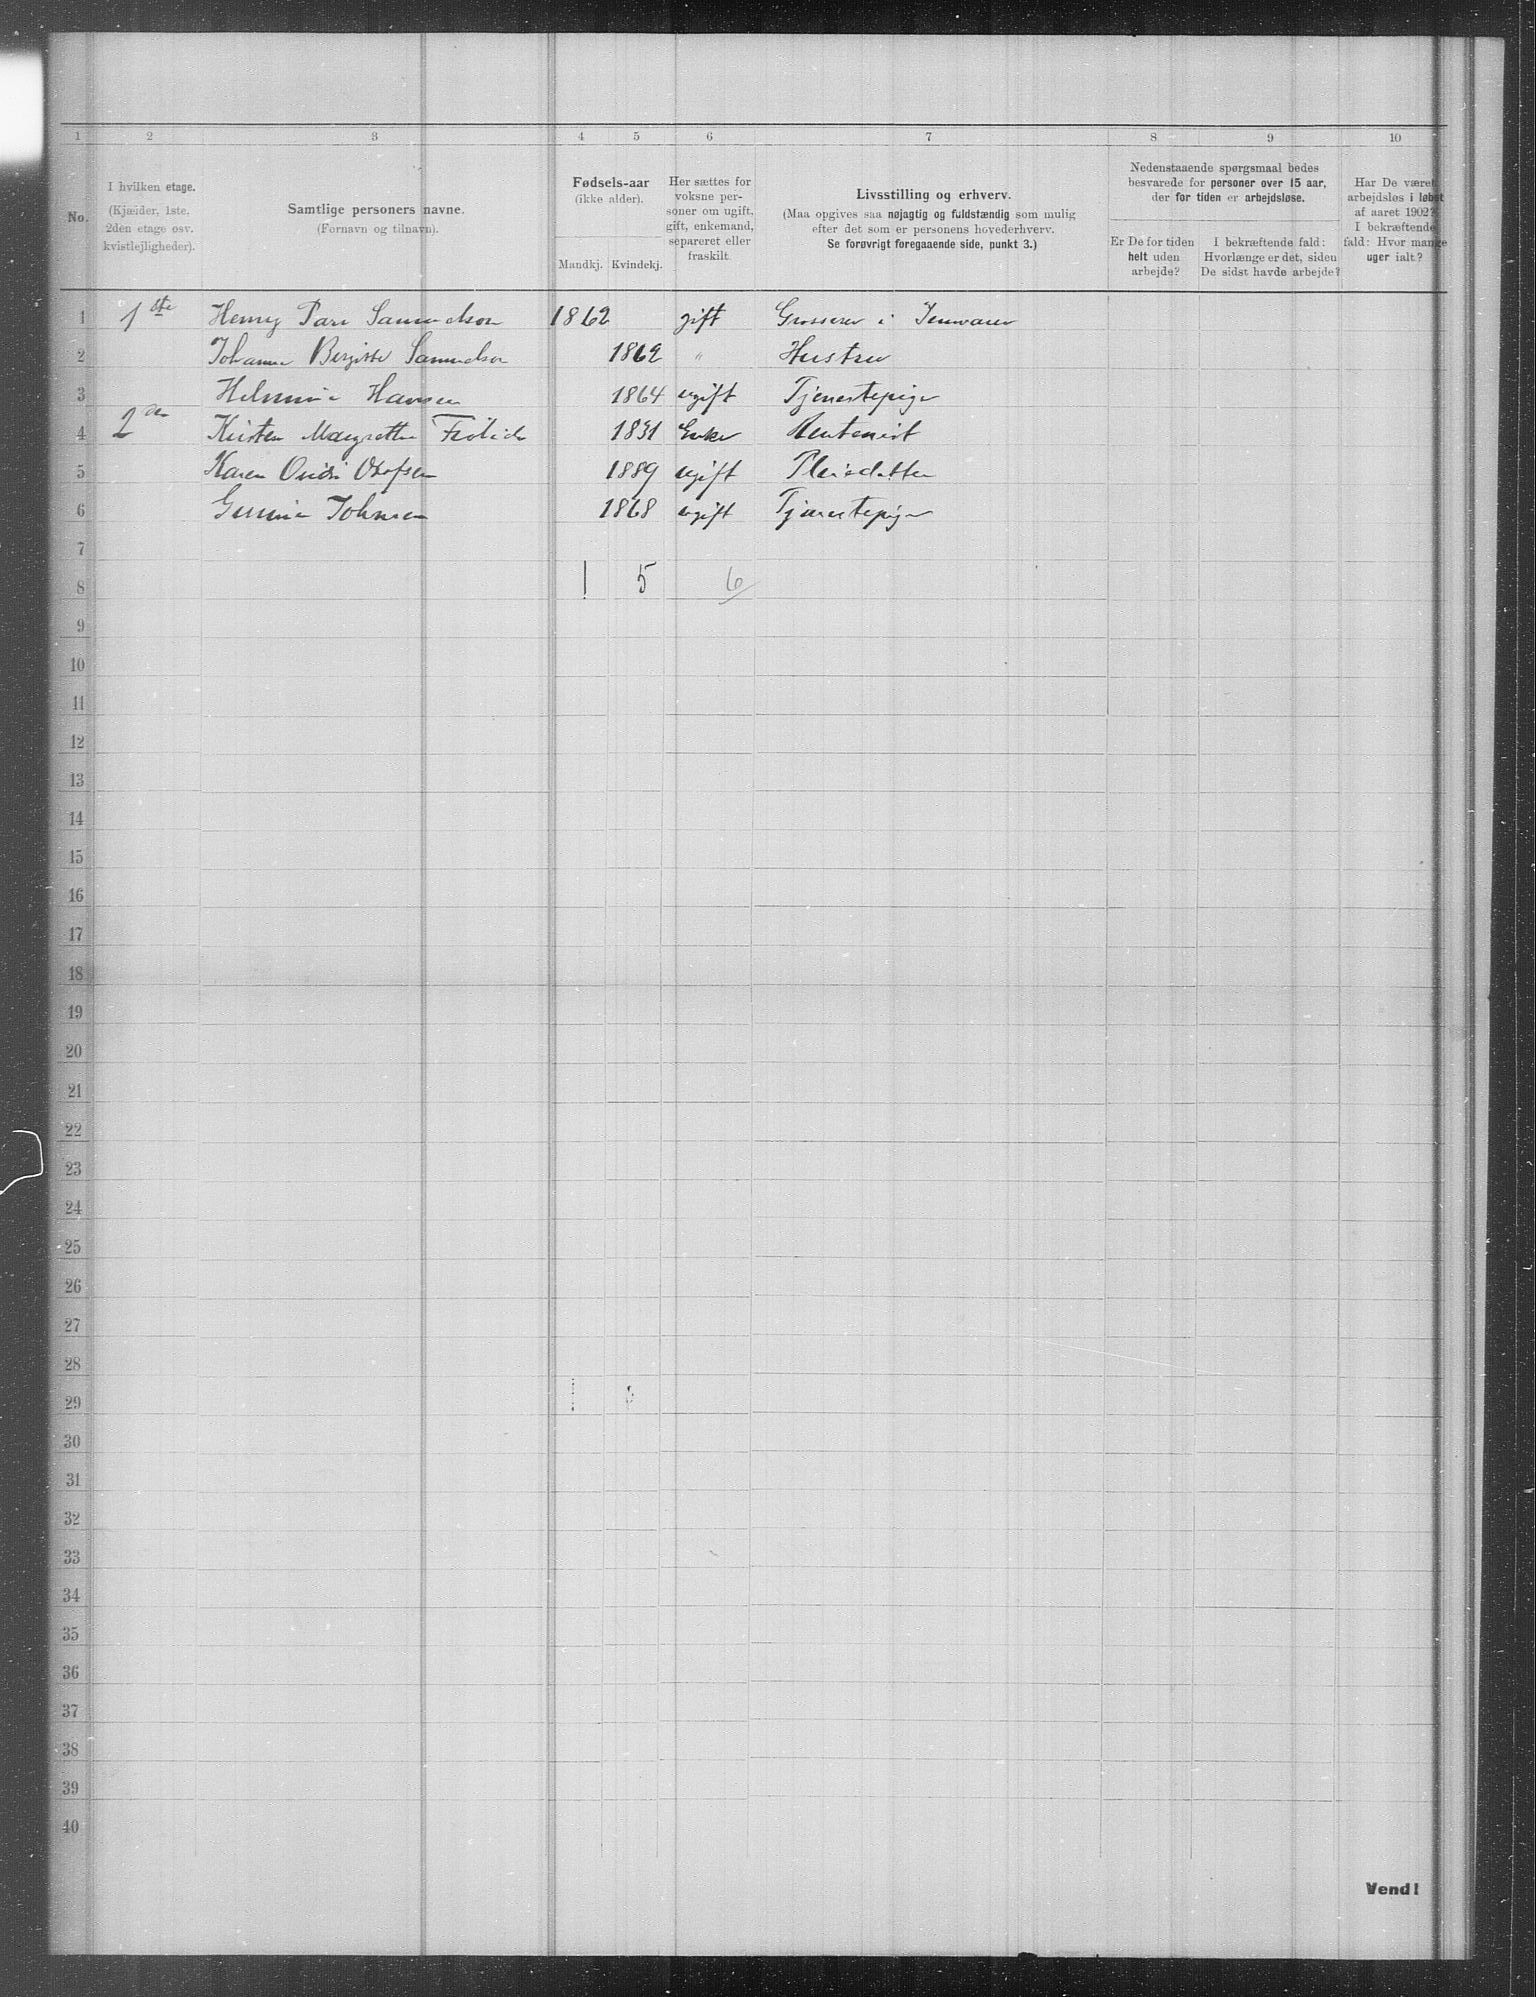 1 2 3 4 5 6 7 8 9 10
No.
I hvilken etage.
(Kjælder, 1ste.
2den etage osv.
kvistlejligheder).
Samtlige personers navne.
(Fornavn og tilnavn).
Fødsels-aar
(ikke alder).
Mandkj. Kvindekj.
Her sættes for
voksne per-
soner om ugift,
gift, enkemand,
separeret eller
fraskilt.
Livsstilling og erhverv.
(Maa opgives saa nøjagtig og fuldstændig som mulig
efter det som er personens hovederhverv.
Se forøvrigt foregaaende side, punkt 3.)
Nedenstaaende spørgsmaal bedes
besvarede for personer over 15 aar,
der for tiden er arbejdsløse.
Er De for tiden
helt uden
arbejde?
I bekræftende fald:
Hvorlænge er det, siden
De sidst havde arbejde?
Har De været
arbejdsløs i løbet
af aaret 1902?
I bekræftende
fald: Hvor mange
uger ialt?
1 1ste Henry Samuelson 1862 gift Grosserer i Jernvarer
2 Johanne Birgitte Samuelson 1862 " Hustru
3 Helmine Hansen 1864 ugift Tjenestepige
4 2den Kirsten Margrethe 1831 Enke Rentenist
5 Karen Olafsen 1889 ugift Pleiedatter
6 Gunine Johnsen 1868 ugift Tjenestepige
7
8 1 5 6
9
10
11
12
13
14
15
16
17
18
19
20
21
22
23
24
25
26
27
28
29
30
31
32
33
34
35
36
37
38
39
40
Vend!